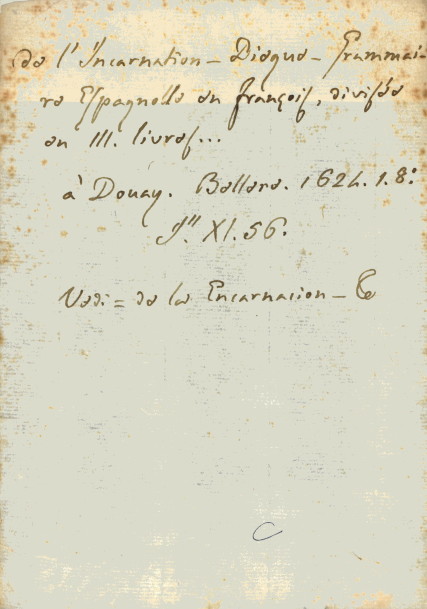 de l'Incarnation - Diegue - Grammai-
re Espagnolle en françois, divisée
en III. livres...
à Douay. Bellere. 1624. 1. 8.º
J." XI. 56.
Vedi = de la Encarnacion -
C